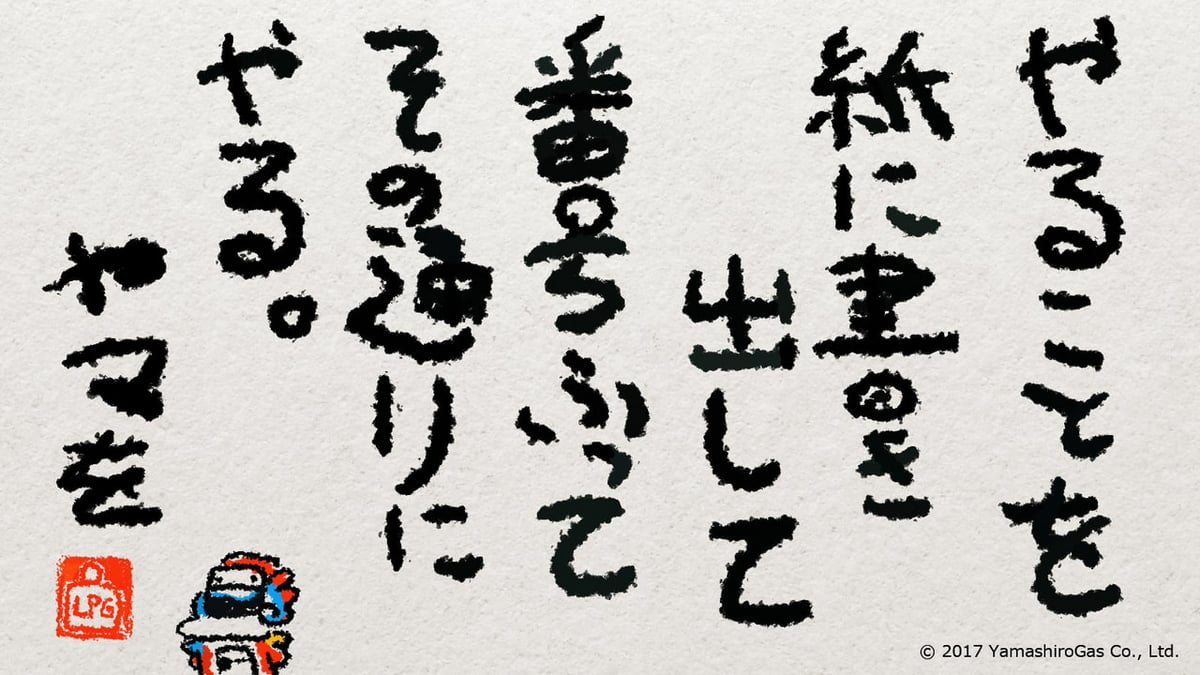 やることを
紙に書き
出して
番号ふって
その通りに
やる。
LPG
© 2017 YamashiroGas Co., Ltd.